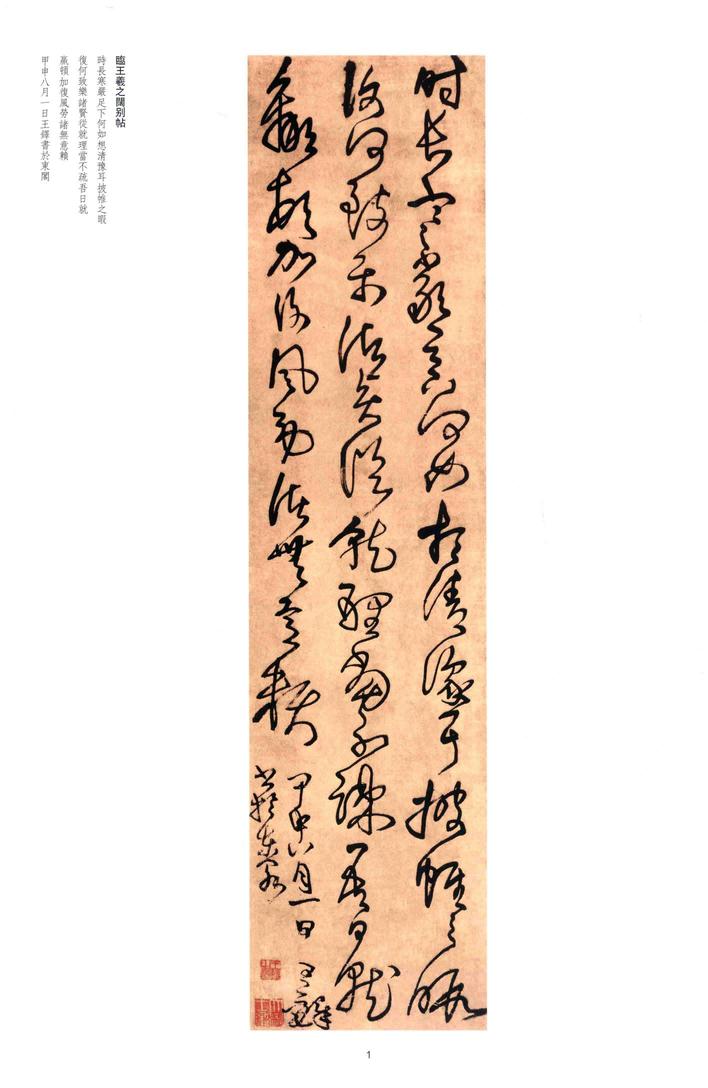 時長寒嚴足下何如想清豫耳披帷之暇
復何致樂諸賢從就理當不疏吾日就
羸頓加復風勞諸無意賴
甲申八月一日王鐸
書於東閣
臨王羲之闊别帖
時長寒嚴足下何如想清豫耳披帷之暇
復何致樂諸賢從就理當不疏吾日就
羸頓加復風勞諸無意賴
甲申八月一日王鐸書於東閣
1